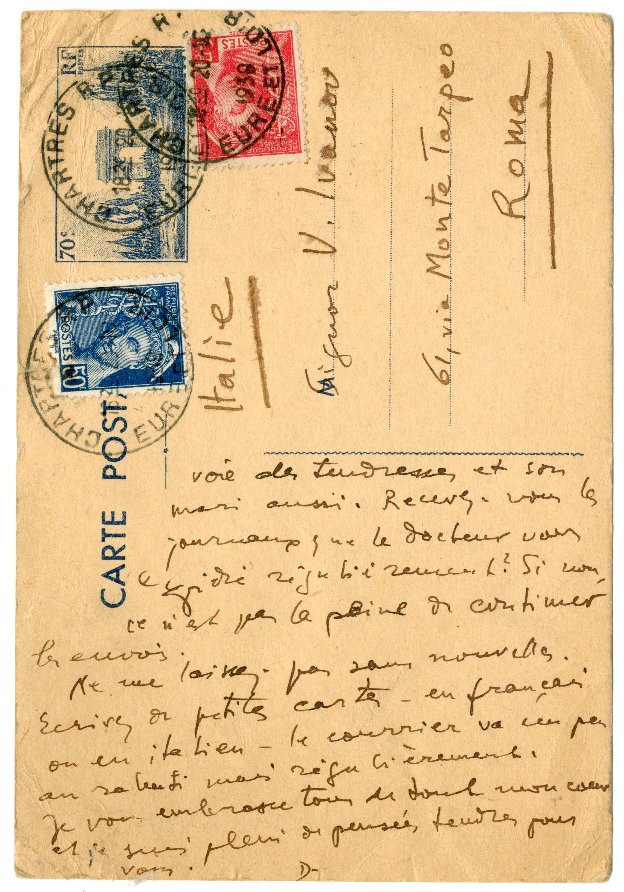 RF
POSTES
70c
CHARTRES R.P.
EURE ET LOIR
CHARTRES R.P.
EURE ET LOIR
20-12
1939
POSTES
50
CHARTRES R.P.
EURE
CARTE POSTA
Signor V. Ivanov
61, via Monte Tarpeo
Roma
Italie
voie des tendresses et son
mari aussi. Recevez-vous les
journaux que le docteur vous
expédie régulièrement? Si non
ce n'est pas la peine de continuer
les envois.
Ne me laissez pas sans nouvelles.
Ecrivez de petites cartes - en français
ou en italien - le courrier va un peu
au ralenti mais régulièrement.
Je vous embrasse tous de tout mon coeur
et je suis plein de pensées tendres pour
vous. D-